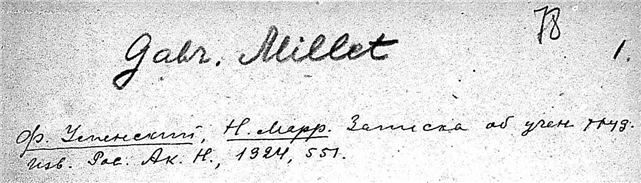 78
Gabr. Millet 1.
Ф. Успенский, Н. Марр. Записка об учен труд.
Изв. Рос. Ак. Н., 1924, 551.